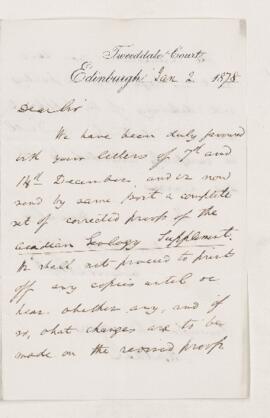 Tweeddale Court,
Edinburgh, Jan 2 1878
Dear Sir
We have been duly favoured
with your letters of 7th and
14th December, and we now
send by same post a complete
set of corrected proofs of the
Acadian Geology Supplement.
We shall not proceed to print
off any copies until we
hear whether any, and if
so, what changes are to be
made on the revised proofs